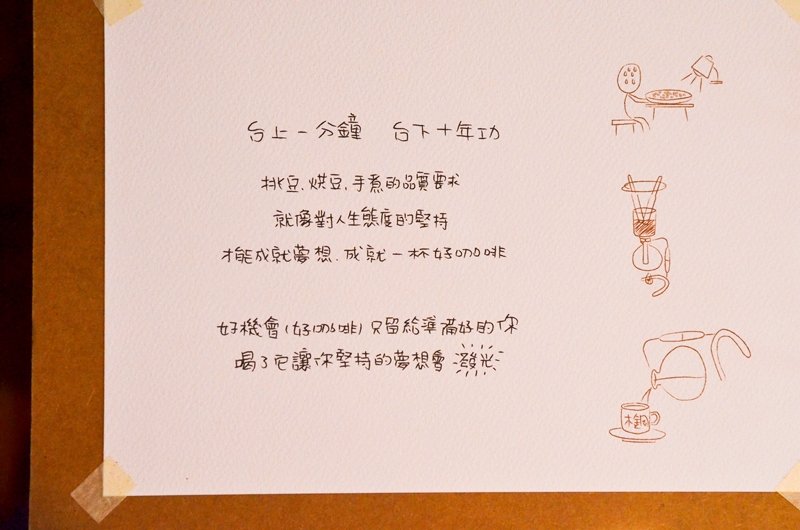 台上一分鐘 台下十年功
挑豆、烘豆、手煮的品質要求
就像對人生態度的堅持
才能成就夢想、成就一杯好咖啡
好機會(好咖啡)只留給準備好的你
喝了它讓你堅持的夢想會潑光